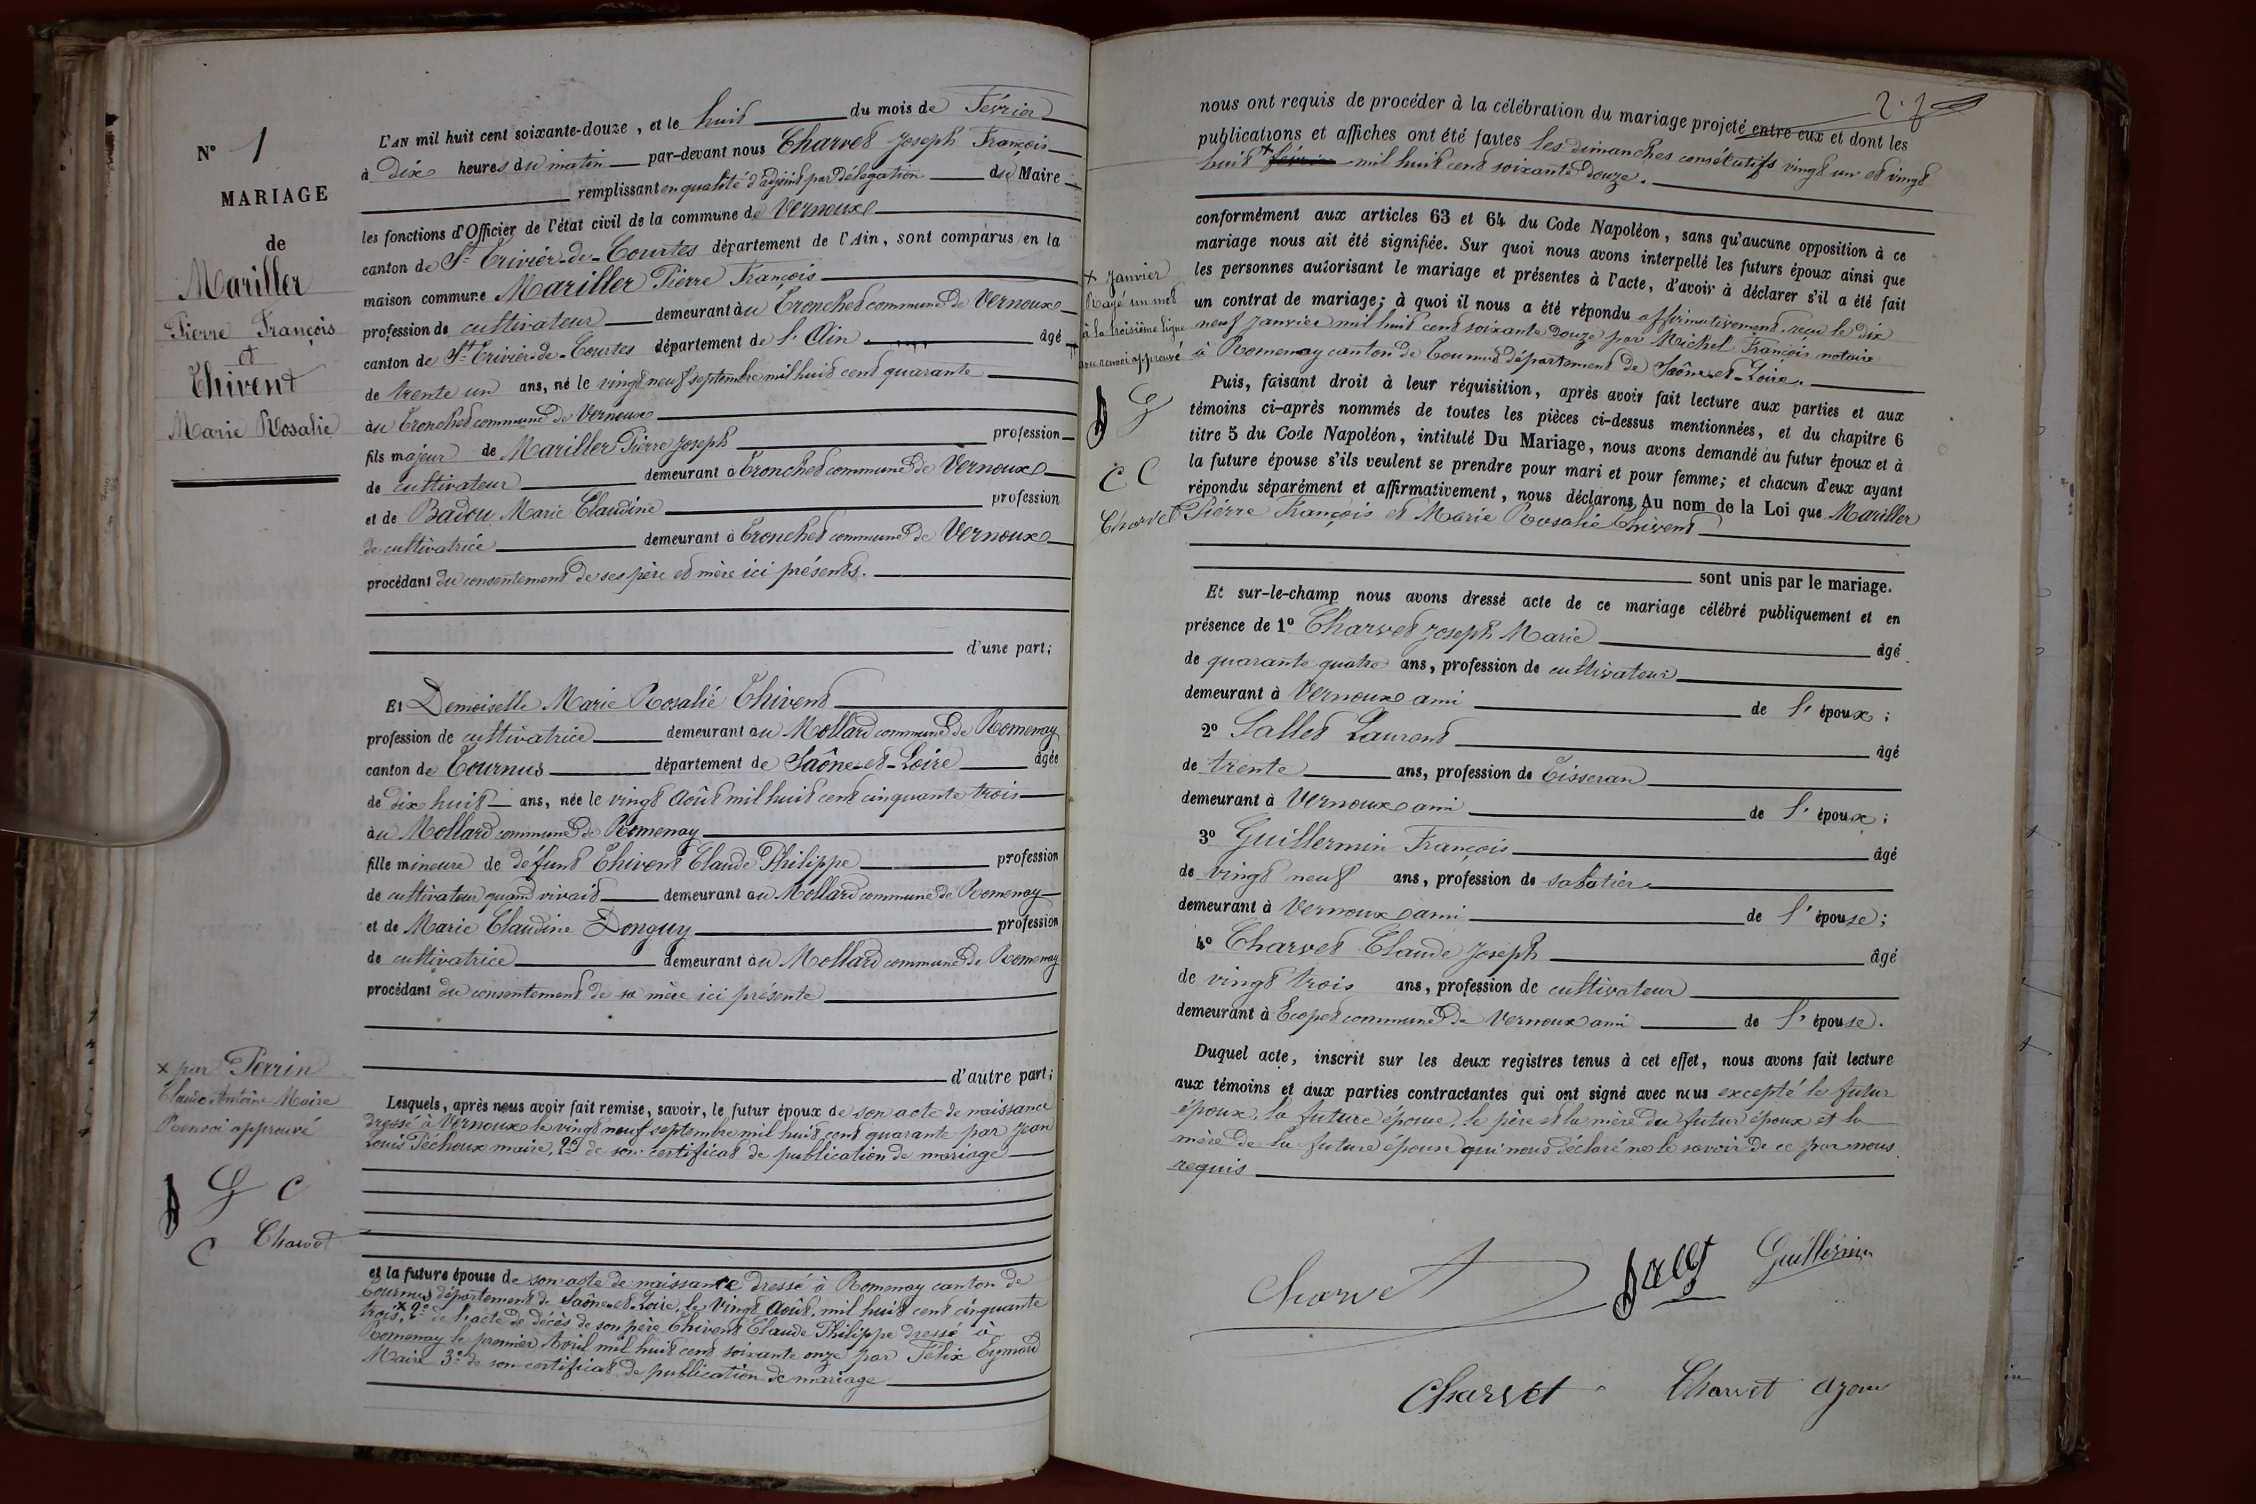 N° 1
MARIAGE
de
Mariller
Pierre François
et
Thivent
Marie Rosalie
L'AN mil huit cent soixante-douze, et le huit du mois de Février
à dix heures du matin par-devant nous Charvet Joseph François
remplissant en qualité d'adjoint par délégation du Maire
les fonctions d'Officier de l'état civil de la commune de Vernoux
canton de St Trivier-de-Courtes département de l'Ain, sont comparus en la
maison commune Mariller Pierre François
profession de cultivateur demeurant au Tronchet commune de Vernoux
canton de St Trivier-de-Courtes département de l'Ain âgé
de trente un ans, né le vingt neuf septembre mil huit cent quarante
au Tronchet commune de Vernoux
fils majeur de Mariller Pierre Joseph profession
de cultivateur demeurant à Tronchet commune de Vernoux
et de Badou Marie Claudine profession
de cultivatrice demeurant à Tronchet commune de Vernoux
procédant du consentement de ses père et mère ici présents.
d'une part;
Et Demoiselle Marie Rosalie Thivent
profession de cultivatrice demeurant au Mollard commune de Romenay
canton de Tournus département de Saône-et-Loire âgée
de dix huit ans, née le vingt Août mil huit cent cinquante trois
au Mollard commune de Romenay
fille mineure de défunt Thivent Claude Philippe profession
de cultivateur quand vivait demeurant au Mollard commune de Romenay
et de Marie Claudine Donguy profession
de cultivatrice demeurant au Mollard commune de Romenay
procédant du consentement de sa mère ici présente
d'autre part;
x par Perrin
Claude Antoine Maire
Renvoi approuvé
G C
C Charvet
Lesquels, après nous avoir fait remise, savoir, le futur époux de son acte de naissance
dressé à Vernoux le vingt neuf septembre mil huit cent quarante par Jean
Louis Péchoux maire, 2° de son certificat de publication de mariage
et la future épouse de son acte de naissance dressé à Romenay canton de
Tournus département de Saône-et-Loire, le vingt Août, mil huit cent cinquante
trois, x 2° de l'acte de décès de son père Thivent Claude Philippe dressé à
Romenay le premier Avril mil huit cent soixante onze par Félix Eymard
Maire 3° de son certificat de publication de mariage
nous ont requis de procéder à la célébration du mariage projeté entre eux et dont les
publications et affiches ont été faites les dimanches consécutifs vingt un et vingt
huit x février mil huit cent soixante douze.
conformément aux articles 63 et 64 du Code Napoléon, sans qu'aucune opposition à ce
mariage nous ait été signifiée. Sur quoi nous avons interpellé les futurs époux ainsi que
les personnes autorisant le mariage et présentes à l'acte, d'avoir à déclarer s'il a été fait
un contrat de mariage; à quoi il nous a été répondu affirmativement, reçu le dix
neuf janvier mil huit cent soixante douze par Michel François notaire
à Romenay canton de Tournus département de Saône-et-Loire.
x Janvier
Rayé un mot
à la troisième ligne
au renvoi approuvé
G
C C
Charvet
Puis, faisant droit à leur réquisition, après avoir fait lecture aux parties et aux
témoins ci-après nommés de toutes les pièces ci-dessus mentionnées, et du chapitre 6
titre 5 du Code Napoléon, intitulé Du Mariage, nous avons demandé au futur époux et à
la future épouse s'ils veulent se prendre pour mari et pour femme; et chacun d'eux ayant
répondu séparément et affirmativement, nous déclarons, Au nom de la Loi que Mariller
Pierre François et Marie Rosalie Thivent
sont unis par le mariage.
Et sur-le-champ nous avons dressé acte de ce mariage célébré publiquement et en
présence de 1° Charvet Joseph Marie âgé
de quarante quatre ans, profession de cultivateur
demeurant à Vernoux ami de l'époux;
2° Sallet Laurent âgé
de trente ans, profession de Tisseran
demeurant à Vernoux ami de l'époux;
3° Guillermin François âgé
de vingt neuf ans, profession de sabatier
demeurant à Vernoux ami de l'épouse;
4° Charvet Claude Joseph âgé
de vingt trois ans, profession de cultivateur
demeurant à Ecopet commune de Vernoux ami de l'épouse.
Duquel acte, inscrit sur les deux registres tenus à cet effet, nous avons fait lecture
aux témoins et aux parties contractantes qui ont signé avec nous excepté le futur
époux, la future épouse, le père et la mère du futur époux et la
mère de la future épouse qui nous déclaré ne le savoir de ce par nous
requis
Charvet Sallet Guillermin
Charvet Charvet